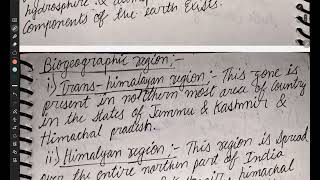 hydrosphere &
components of the earth exists.
Biogeographic region:-
i) Trans-himalayan region:- This zone is
present in northern most area of country
in the states of Jammu & Kashmir &
Himachal pradesh.
ii) Himalyan region:- This region is spread
over the entire northen part of India
himachal